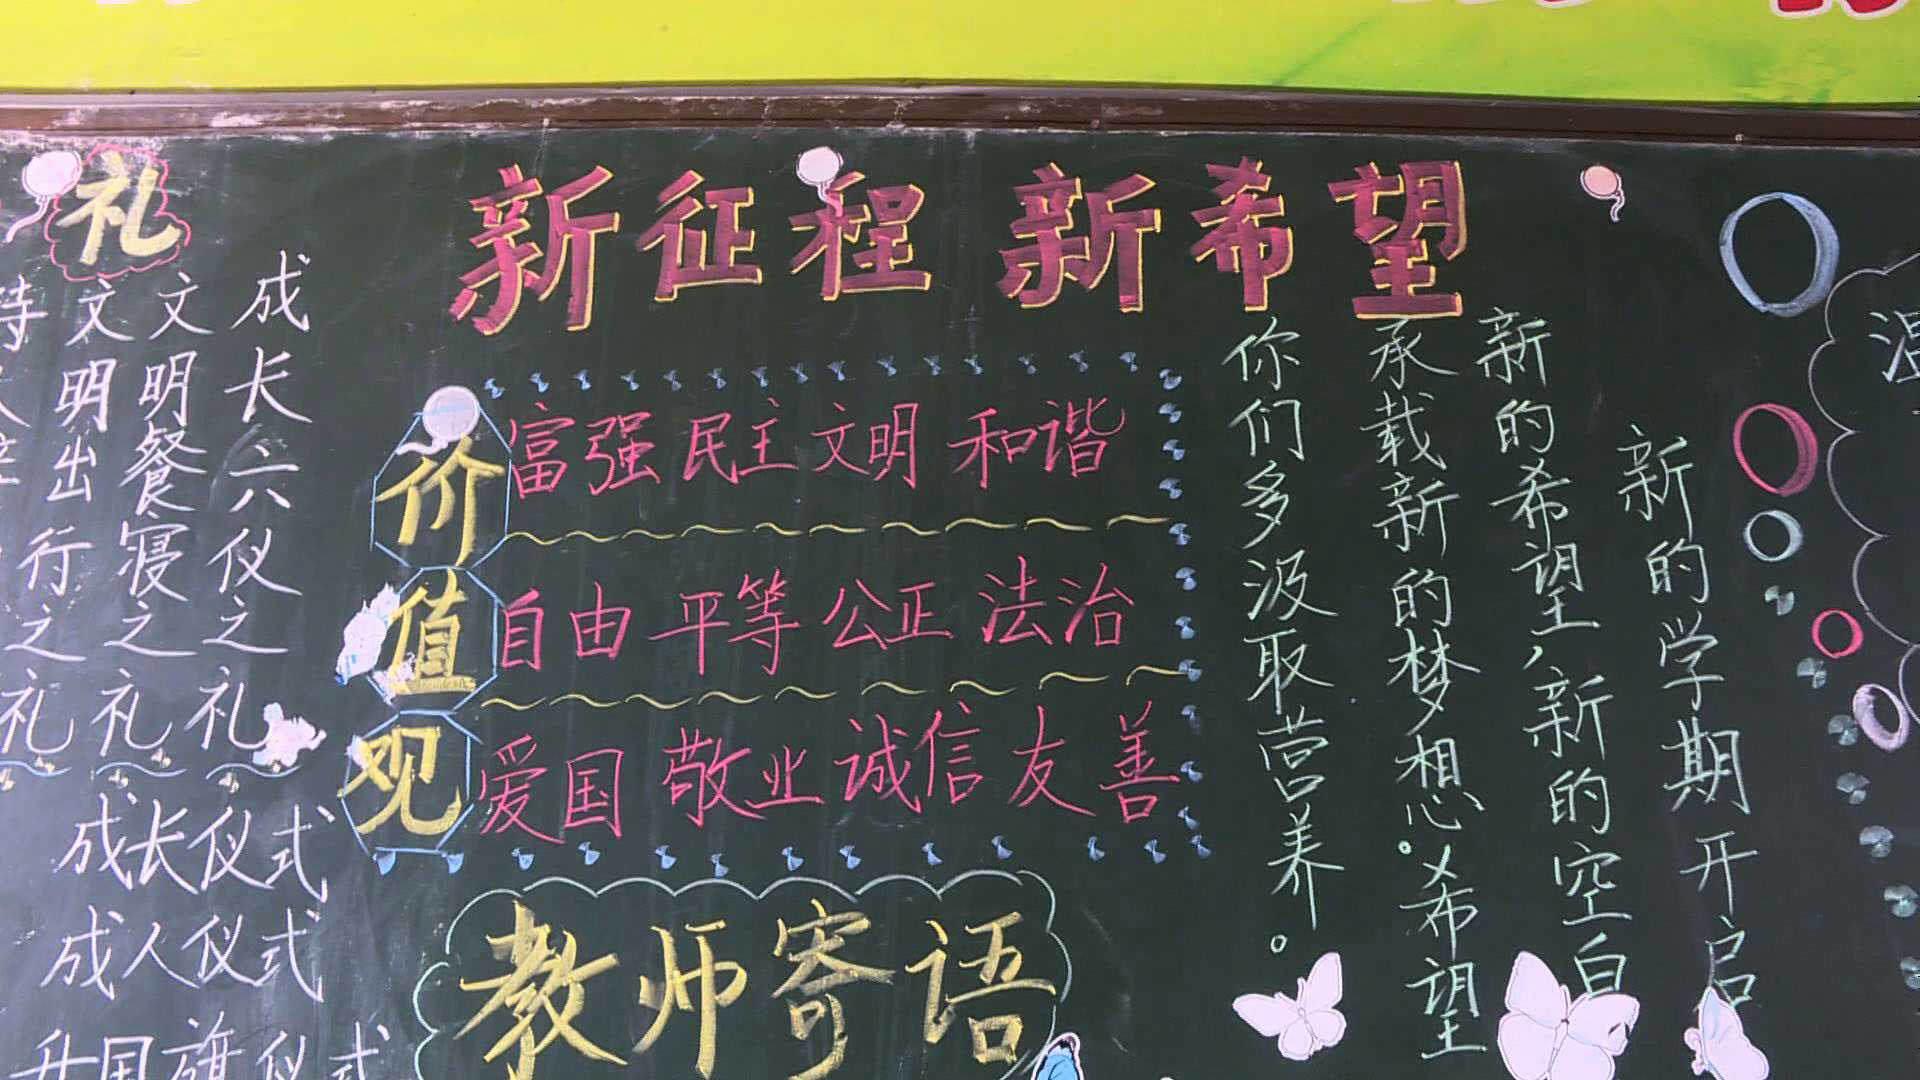 新征程 新希望
礼
成长六仪之礼
文明餐寝之礼
文明出行之礼
成长仪式
成人仪式
升国旗仪式
价值观
富强 民主 文明 和谐
自由 平等 公正 法治
爱国 敬业 诚信 友善
教师寄语
新的学期开启
新的希望,新的空白
承载新的梦想。希望
你们多汲取营养。